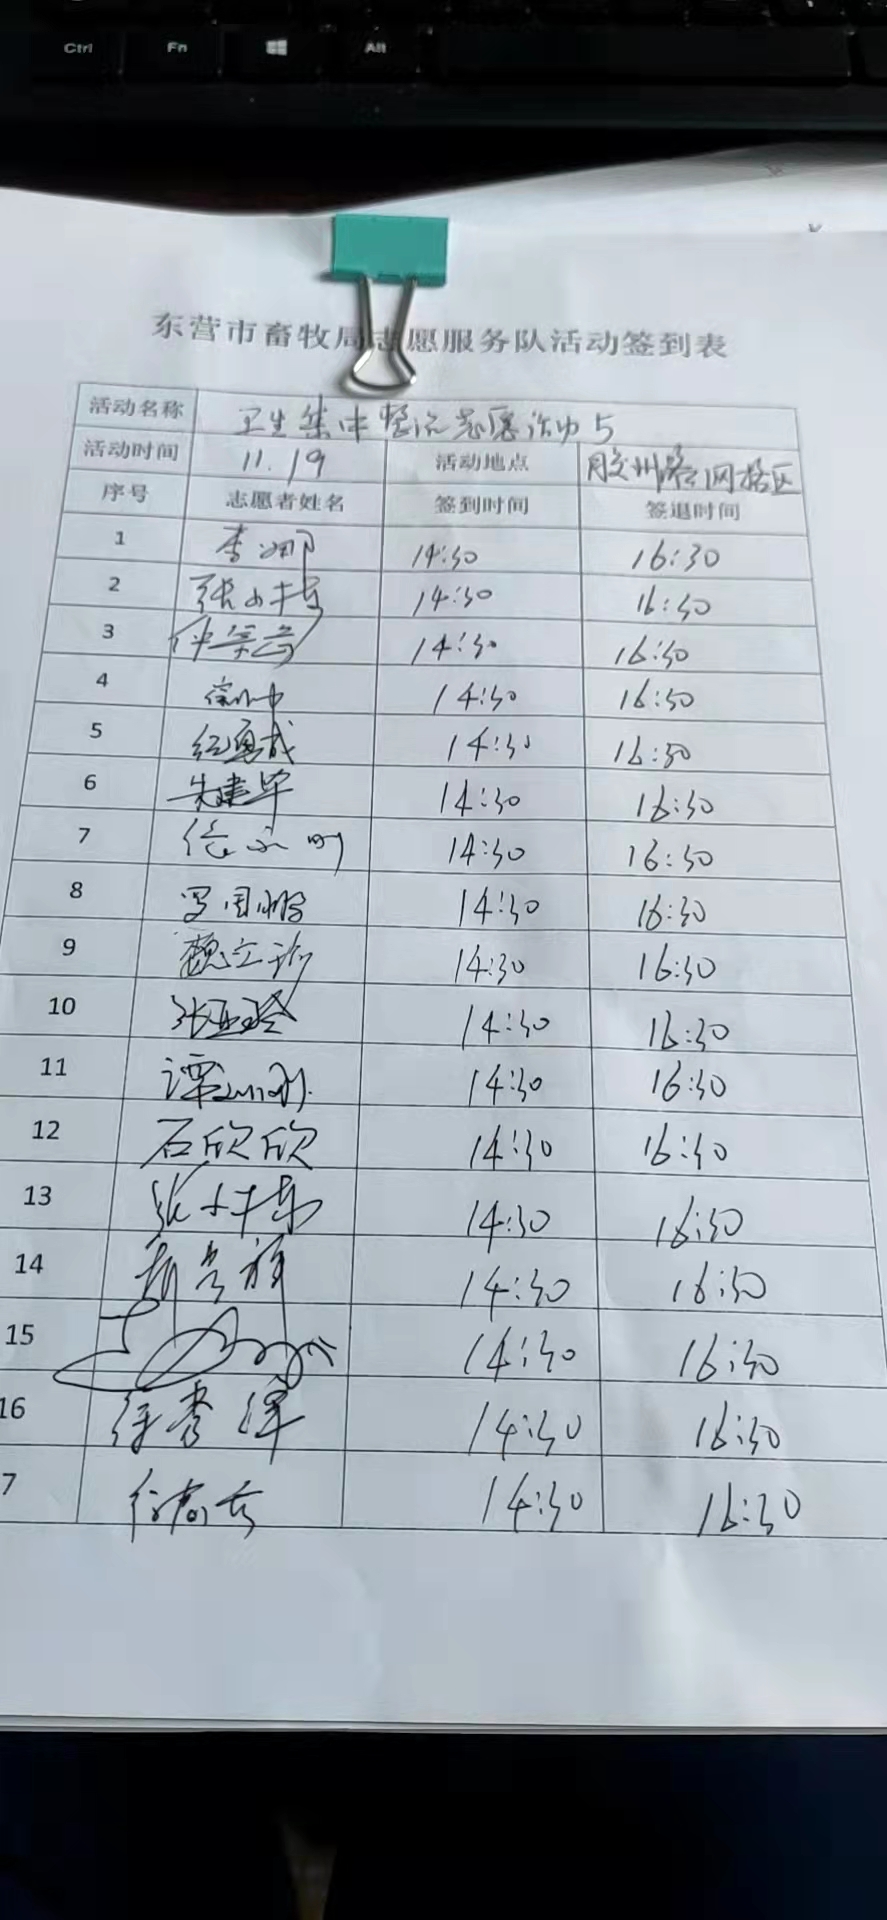 Ctrl Fn Alt
东营市畜牧局志愿服务队活动签到表
活动名称 卫生集中整治志愿活动5
活动时间 11.19 活动地点 胶州路网格区
序号 志愿者姓名 签到时间 签退时间
1 李娜 14:30 16:30
2 14:30 16:30
3 14:30 16:30
4 14:30 16:30
5 纪勇成 14:30 16:30
6 朱建华 14:30 16:30
7 14:30 16:30
8 罗国鹏 14:30 16:30
9 魏立珍 14:30 16:30
10 张亚玲 14:30 16:30
11 谭 14:30 16:30
12 石欣欣 14:30 16:30
13 张 14:30 16:30
14 14:30 16:30
15 14:30 16:30
16 徐秀泽 14:30 16:30
7 14:30 16:30